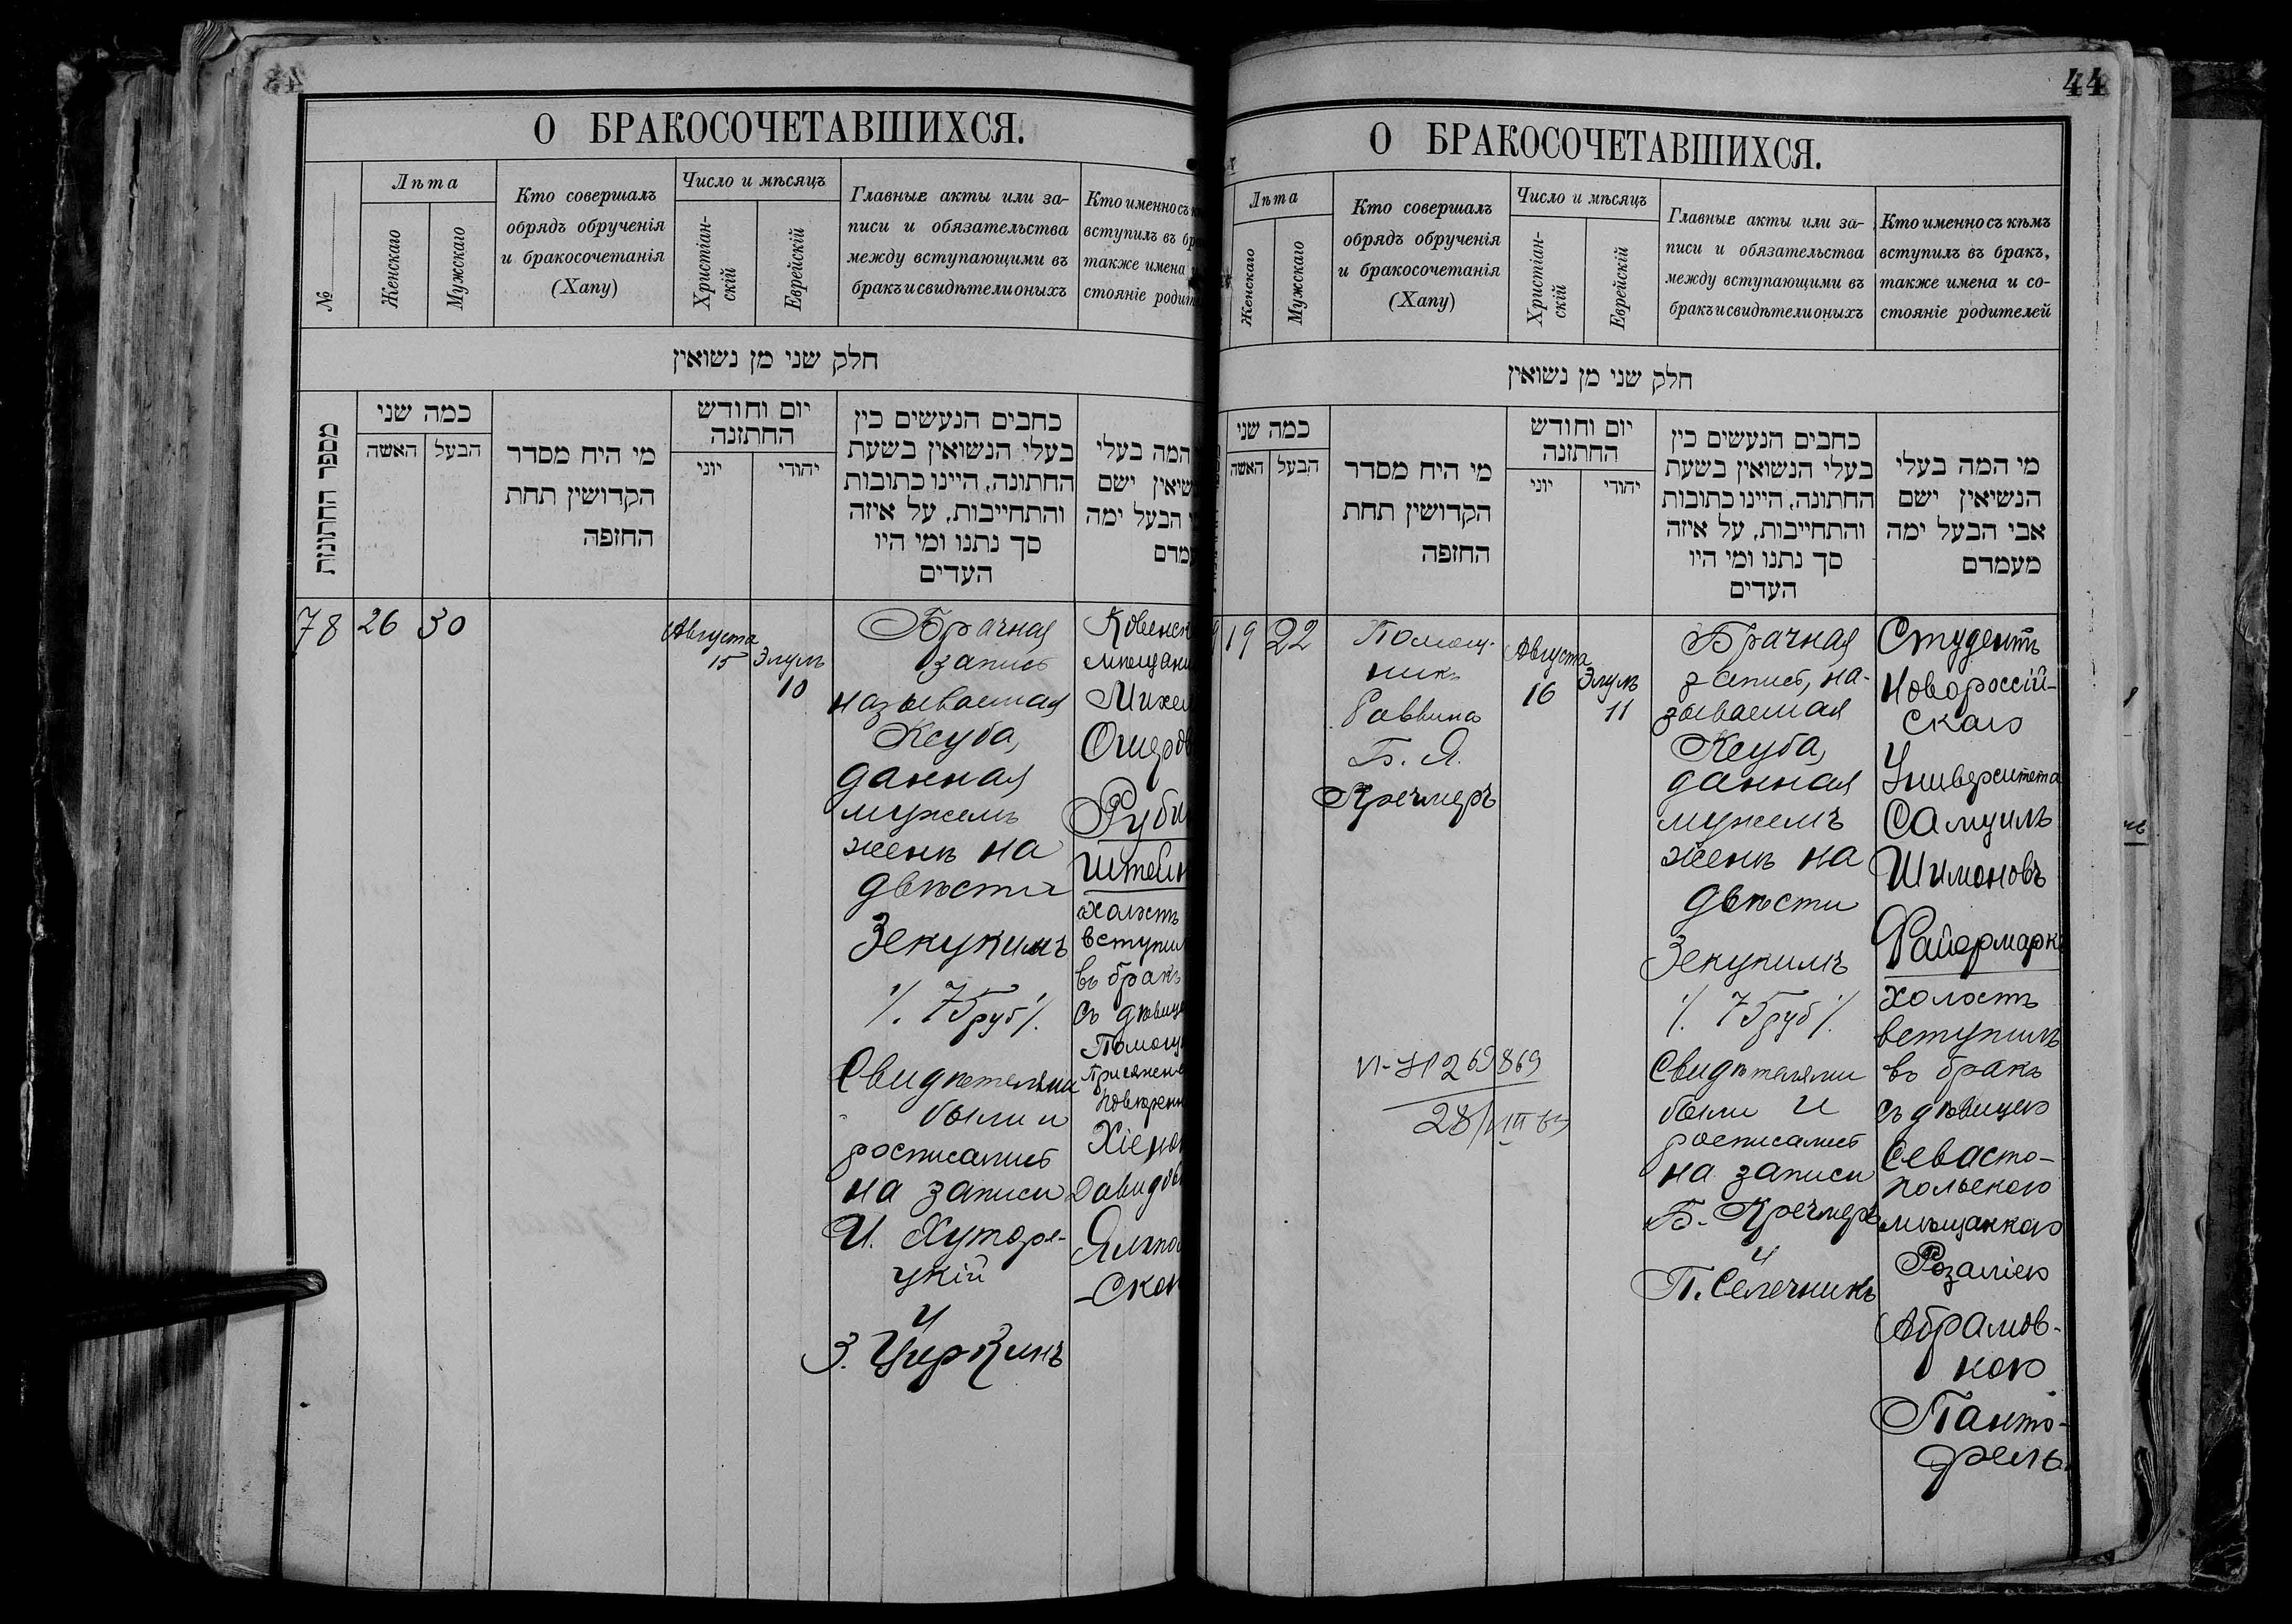 О БРАКОСОЧЕТАВШИХСЯ.
№
Лѣта
Женскаго
Мужскаго
Кто совершалъ
обрядъ обрученія
и бракосочетанія
(Хапу)
Число и мѣсяцъ
Христіан-
скій
Еврейскій
Главные акты или за-
писи и обязательства
между вступающими въ
бракъ и свидѣтели оныхъ
Кто именно съ
вступилъ въ бр
также имена
стояніе родит
חלק שני מן נשואין
מספר החתונות
כמה שני
האשה
הבעל
מי היח מסדר
הקדושין תחת
החופה
יום וחודש
החתונה
יוני
יהודי
כחבים הנעשים כין
בעלי הנשואין בשעת
החתונה, היינו כתובות
והתחייבות, על איזה
סך נתנו ומי היו
העדים
המה בעלי
שיאין ישם
הבעל ימה
עמדם
78
26
30
Августа
15
Элулъ
10
Брачная
запись
называемая
Ксуба,
данная
мужемъ
женѣ на
двѣсти
Зекукимъ
/. 75 руб /.
Свидѣтелями
были и
росписались
на записи
И. Хуторе-
цкій
и
З. Циркинъ
Ковенск
мѣщани
Михел
Ошеров
Руби
штейн
холостъ
вступил
въ бракъ
съ дѣвице
Помощ
Присяжна
повѣренн
Хіено
Давидов
Ямпо
-Ско
44
О БРАКОСОЧЕТАВШИХСЯ.
Лѣта
Женскаго
Мужскаго
Кто совершалъ
обрядъ обрученія
и бракосочетанія
(Хапу)
Число и мѣсяцъ
Христіан-
скій
Еврейскій
Главные акты или за-
писи и обязательства
между вступающими въ
бракъ и свидѣтели оныхъ
Кто именно съ кѣмъ
вступилъ въ бракъ,
также имена и со-
стояніе родителей
חלק שני מן נשואין
כמה שני
האשה
הבעל
מי היח מסדר
הקדושין תחת
החופה
יום וחודש
החתונה
יוני
יהודי
כחבים הנעשים כין
בעלי הנשואין בשעת
החתונה, היינו כתובות
והתחייבות, על איזה
סך נתנו ומי היו
העדים
מי המה בעלי
הנשיאין ישם
אבי הבעל ימה
מעמדם
9
19
22
Помощ-
никъ
Раввина
Б. Я.
Кречмеръ
VI-ЯР 269869
Августа
16
Элулъ
11
Брачная
запись, на-
зываемая
Ксуба,
данная
мужемъ
женѣ на
двѣсти
Зекукимъ
/. 75 руб /.
Свидѣтелями
были и
росписались
на записи
Б. Кречмеръ
и
П. Селечникъ
Студентъ
Новороссій-
скаго
Университета
Самуилъ
Шимоновъ
Файермаркъ
холостъ
вступилъ
въ бракъ
съ дѣвицею
Севасто-
польскою
мѣщанкою
Розаліею
Абрамов-
ною
Панто-
фель.